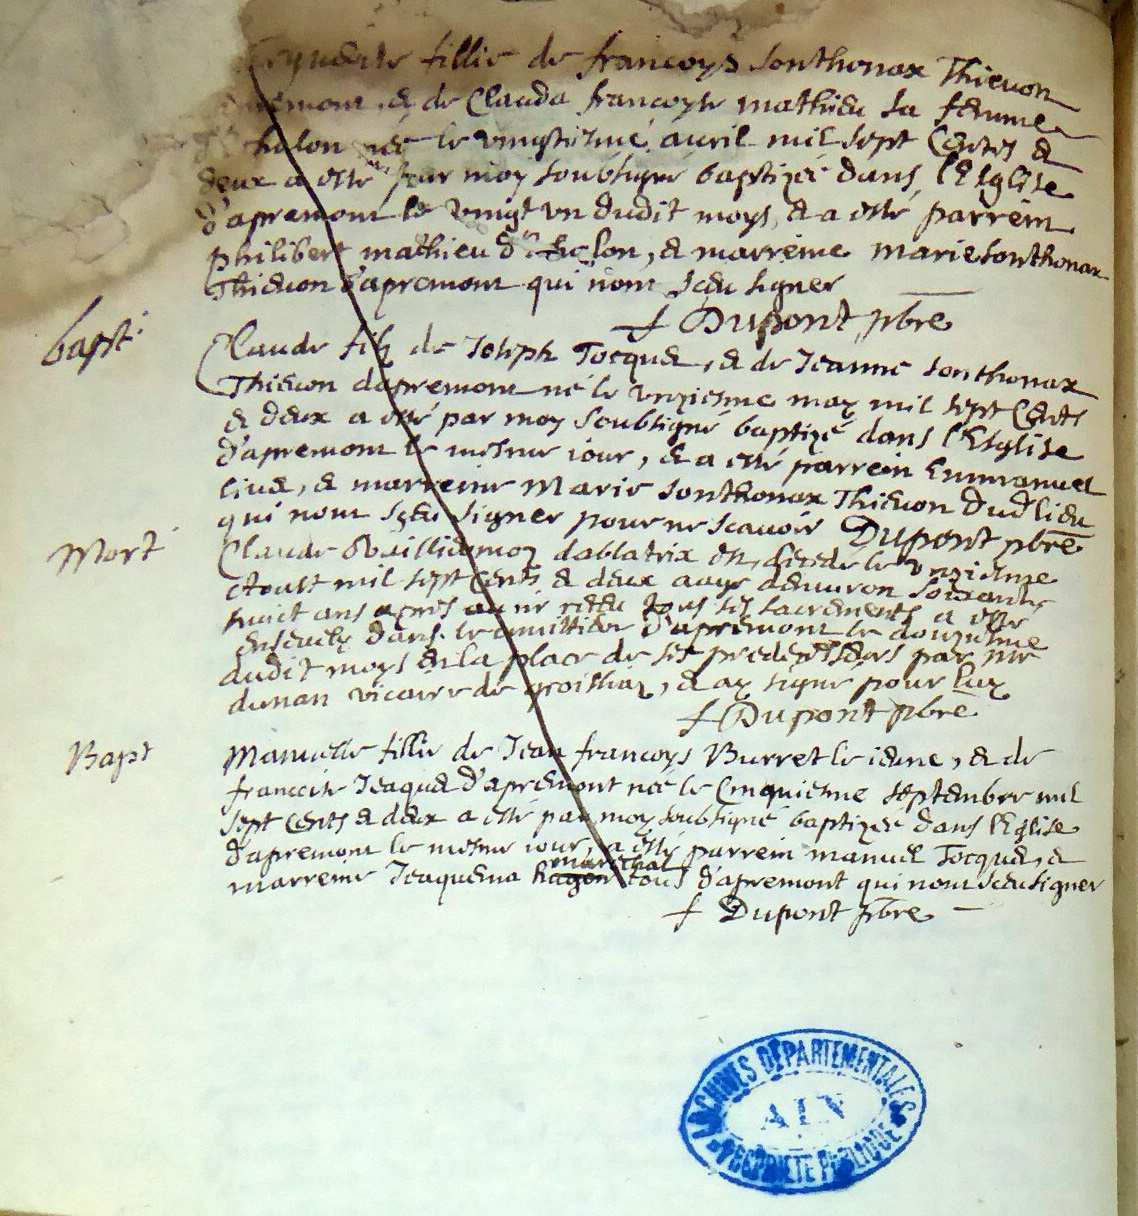 fillie de francoys Sonthonax Thievon
& de Clauda francoyse mathieu sa femme
née le vingtiesme avril mil sept Cents &
deux a esté par moy soubsigné baptizée dans l'Esglise
d'apremont le vingt un dudit moys, & a esté parrein
philibert mathieu lon, & marreine marie Sonthonax
Thievon d'apremont qui nont sceu signer
Dupont pbre
bapt:
Claude filz de Joseph Tocquet, & de Jeanne Sonthonax
Thievon dapremont né le unziesme may mil sept Cents
& deux a esté par moy soubsigné baptizé dans l'Esglise
d'apremont le mesme jour, & a esté parrein Emmanuel
& marreine Marie Sonthonax Thievon dud lieu
qui nont sceu signer pour ne scavoir Dupont pbre
Mort
Claude dablatrix est decede le unziesme
Aoust mil sept Cents & deux aage denviron soixante
huict ans apres receu tous ses sacrements a esté
ensevely dans le cimittiere d'apremont le douziesme
dudit moys en la place de ses predecesseurs par mre
dunan vicaire de & ay signe pour luy
Dupont pbre
Bapt
fillie de Jean francoys Burret le jeune, & de
francoise Jeaquet d'apremont née le Cinquiesme septembre mil
sept Cents & deux a esté par moy soubsigné baptizée dans l'Eglise
d'apremont le mesme jour, a esté parrein manuel Tocquet, &
marechal
marreine Jeaquema tous d'apremont qui nont sceu signer
Dupont pbre
ARCHIVES DÉPARTEMENTALES
AIN
PROPRIÉTÉ PUBLIQUE